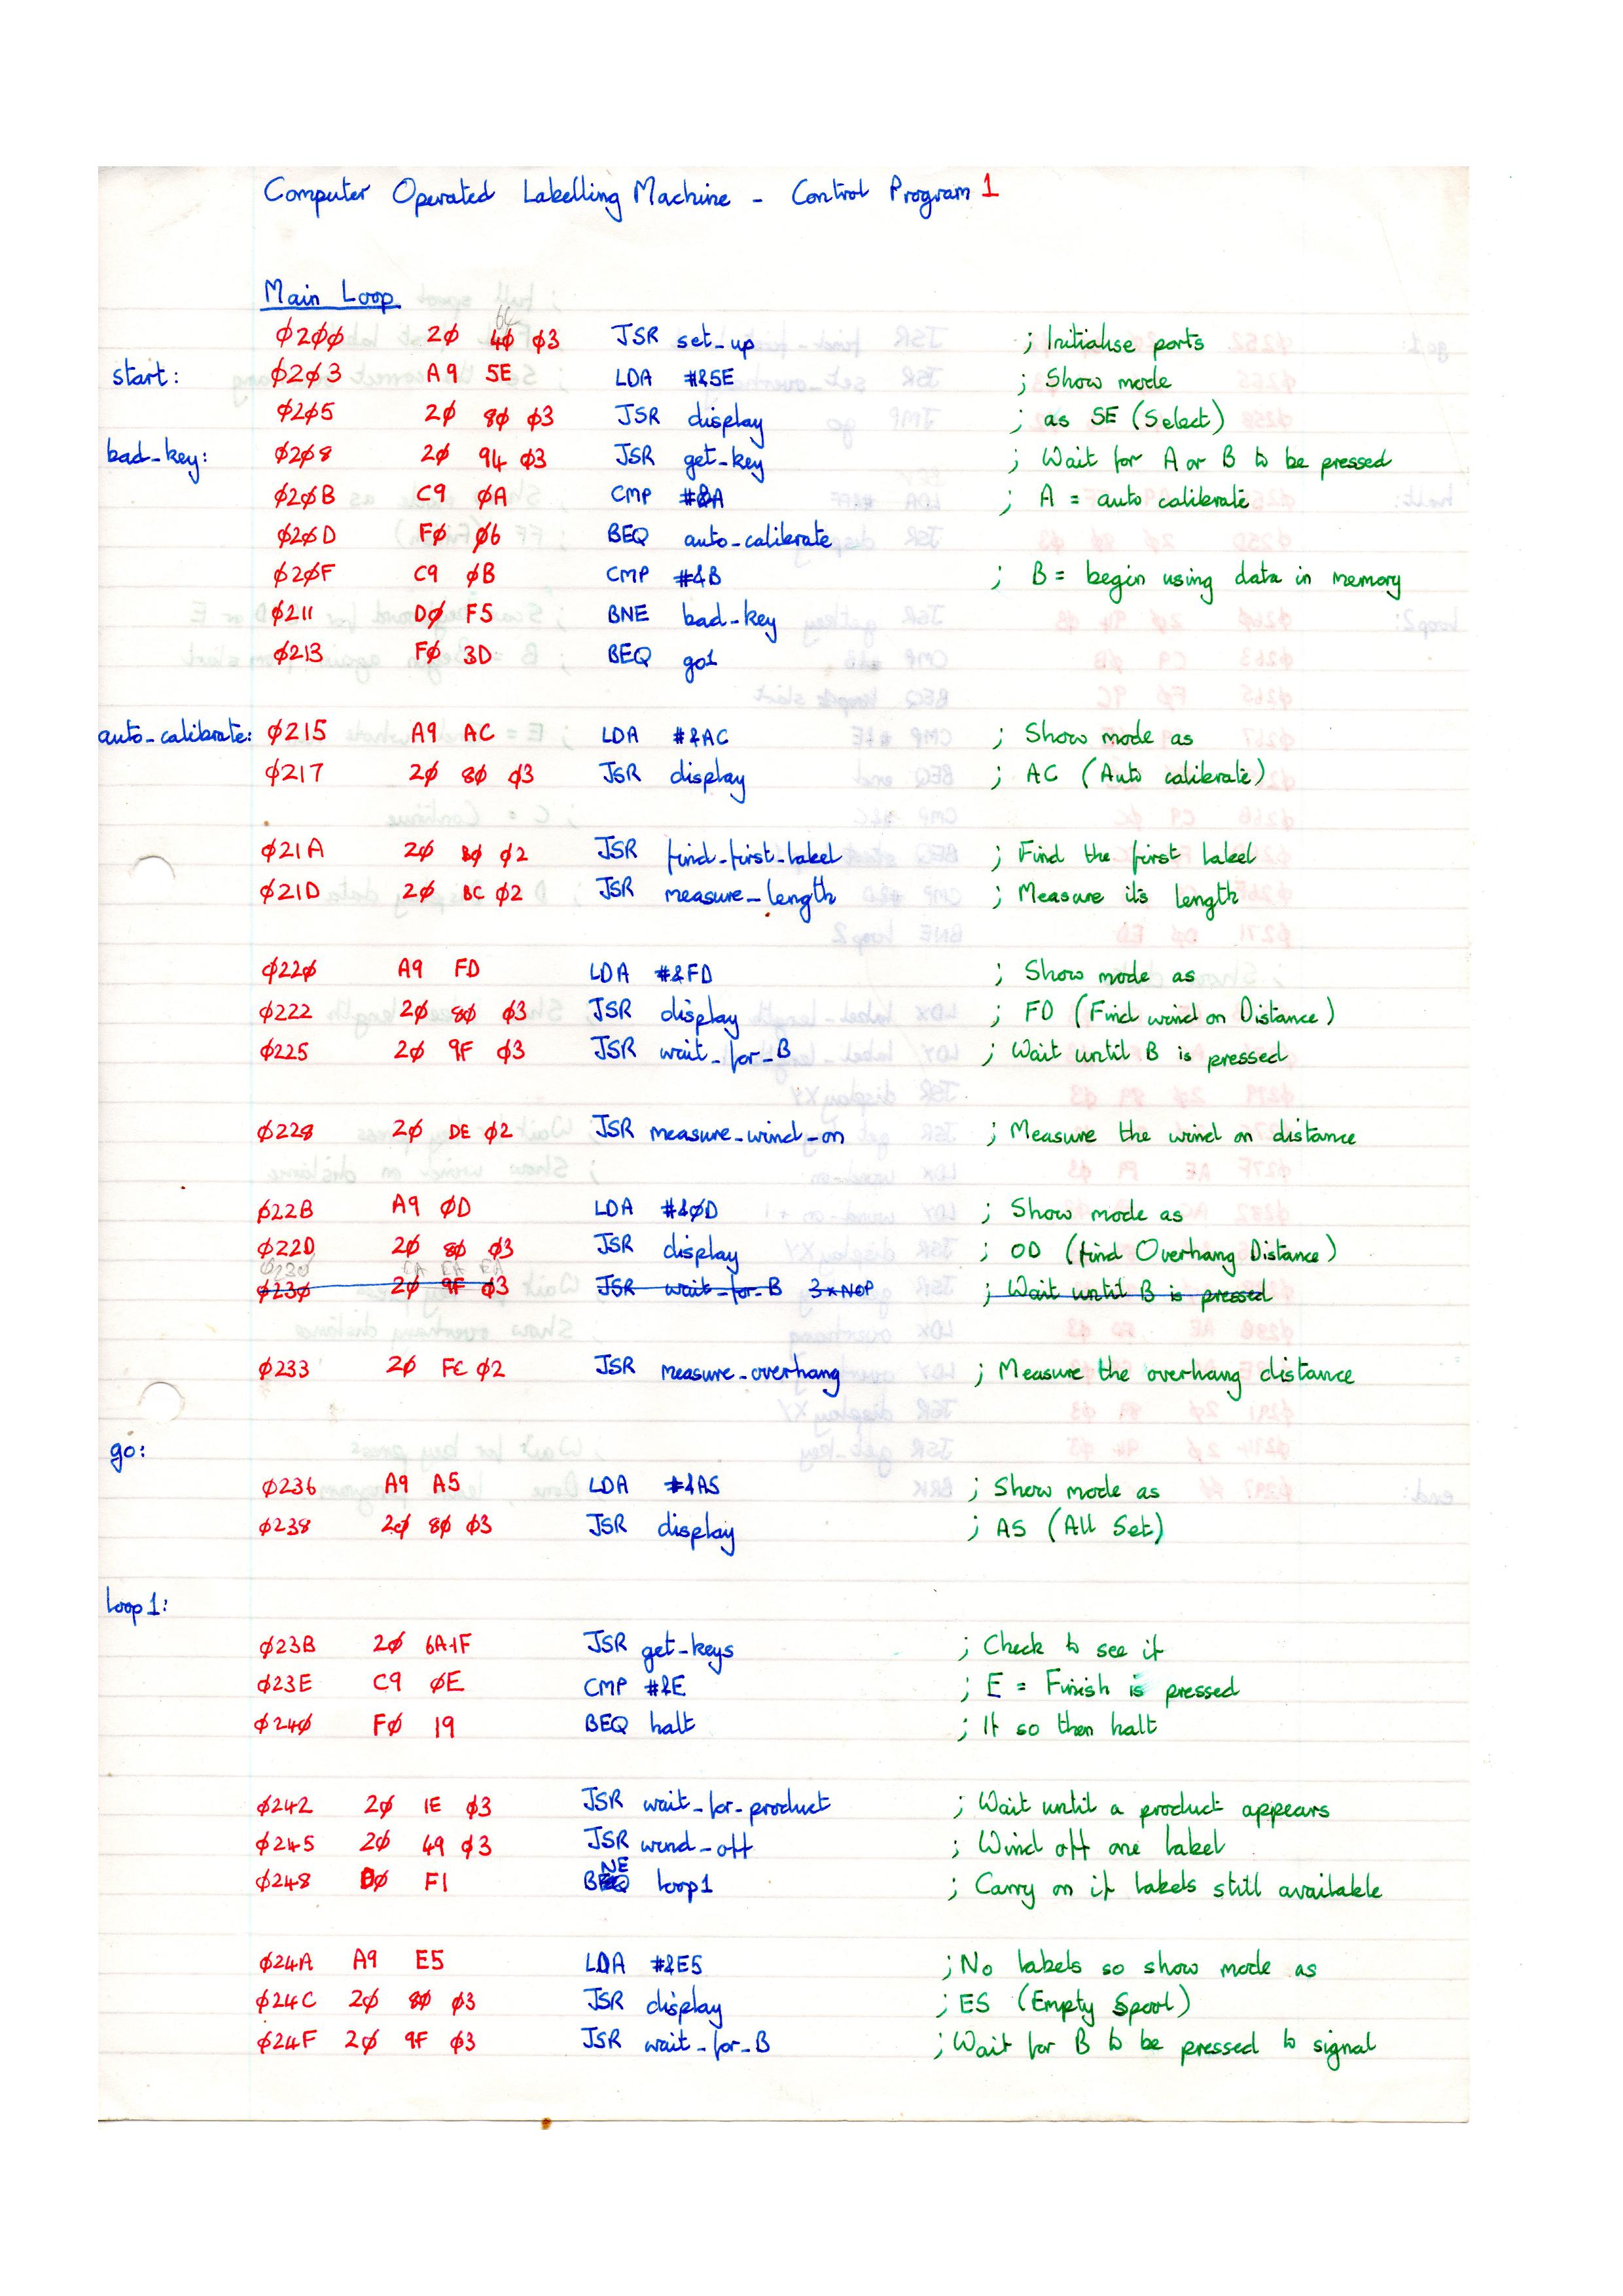 Computer Operated Labelling Machine - Control Program 1
Main Loop
64
Ø2ØØ 2Ø 4Ø Ø3 JSR set_up ; Initialise ports
start: Ø2Ø3 A9 5E LDA #&5E ; Show mode
Ø2Ø5 2Ø 8Ø Ø3 JSR display ; as SE (Select)
bad_key: Ø2Ø8 2Ø 94 Ø3 JSR get_key ; Wait for A or B to be pressed
Ø2ØB C9 ØA CMP #&A ; A = auto caliberate
Ø2ØD FØ Ø6 BEQ auto_caliberate
Ø2ØF C9 ØB CMP #&B ; B = begin using data in memory
Ø211 DØ F5 BNE bad_key
Ø213 FØ 3D BEQ go1
auto_caliberate: Ø215 A9 AC LDA #&AC ; Show mode as
Ø217 2Ø 8Ø Ø3 JSR display ; AC (Auto caliberate)
Ø21A 2Ø BØ Ø2 JSR find_first_label ; Find the first label
Ø21D 2Ø BC Ø2 JSR measure_length ; Measure its length
Ø22Ø A9 FD LDA #&FD ; Show mode as
Ø222 2Ø 8Ø Ø3 JSR display ; FD (Find wind on Distance)
Ø225 2Ø 9F Ø3 JSR wait_for_B ; Wait until B is pressed
Ø228 2Ø DE Ø2 JSR measure_wind_on ; Measure the wind on distance
Ø22B A9 ØD LDA #&ØD ; Show mode as
Ø22D 2Ø 8Ø Ø3 JSR display ; OD (find Overhang Distance)
Ø23Ø 2Ø 9F Ø3 JSR wait_for_B 3xNOP ; Wait until B is pressed
Ø233 2Ø FC Ø2 JSR measure_overhang ; Measure the overhang distance
go:
Ø236 A9 A5 LDA #&A5 ; Show mode as
Ø238 2Ø 8Ø Ø3 JSR display ; AS (All Set)
loop1:
Ø23B 2Ø 6A 1F JSR get_keys ; Check to see if
Ø23E C9 ØE CMP #&E ; E = Finish is pressed
Ø24Ø FØ 19 BEQ halt ; If so then halt
Ø242 2Ø 1E Ø3 JSR wait_for_product ; Wait until a product appears
Ø245 2Ø 49 Ø3 JSR wind_off ; Wind off one label
Ø248 DØ F1 BNE loop1 ; Carry on if labels still available
Ø24A A9 E5 LDA #&E5 ; No labels so show mode as
Ø24C 2Ø 8Ø Ø3 JSR display ; ES (Empty Spool)
Ø24F 2Ø 9F Ø3 JSR wait_for_B ; Wait for B to be pressed to signal